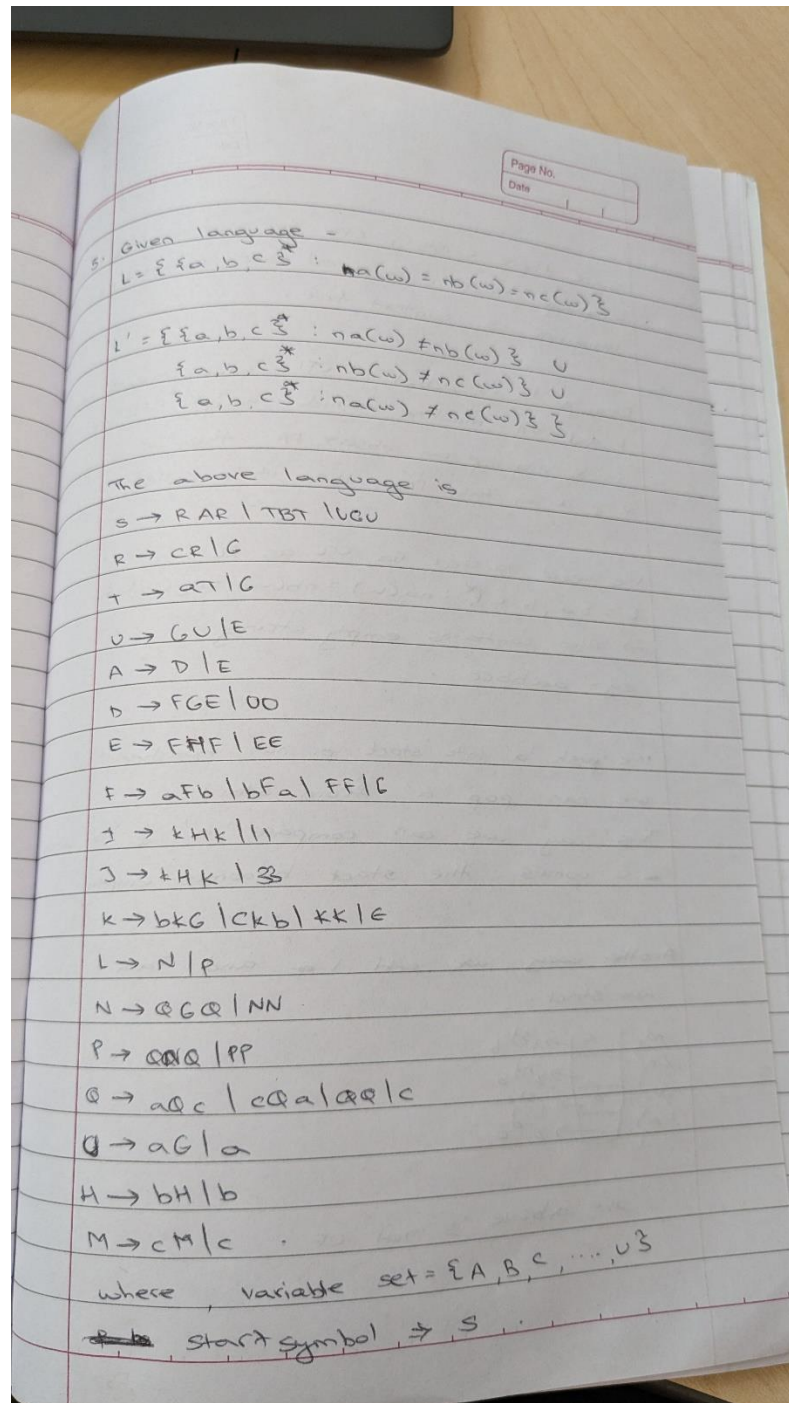 Page No.
Date
5. Given language -
L = { {a, b, c}* : na(w) = nb(w) = nc(w) }
L' = { {a, b, c}* : na(w) ≠ nb(w) } ∪
{a, b, c}* : nb(w) ≠ nc(w) } ∪
{a, b, c}* : na(w) ≠ nc(w) } }
The above language is
S → RAR | TBT | UCU
R → CR | G
T → aT | G
U → GU | E
A → D | E
D → FGE | OO
E → FHF | EE
F → aFb | bFa | FF | G
I → KHK | 11
J → KHK | 33
K → bKG | CKb | KK | ∈
L → N | P
N → QGQ | NN
P → QNQ | PP
Q → aQc | cQa | QQ | c
G → aG | a
H → bH | b
M → cM | c .
where , variable set = { A, B, C, ...., U }
start symbol ⇒ S .